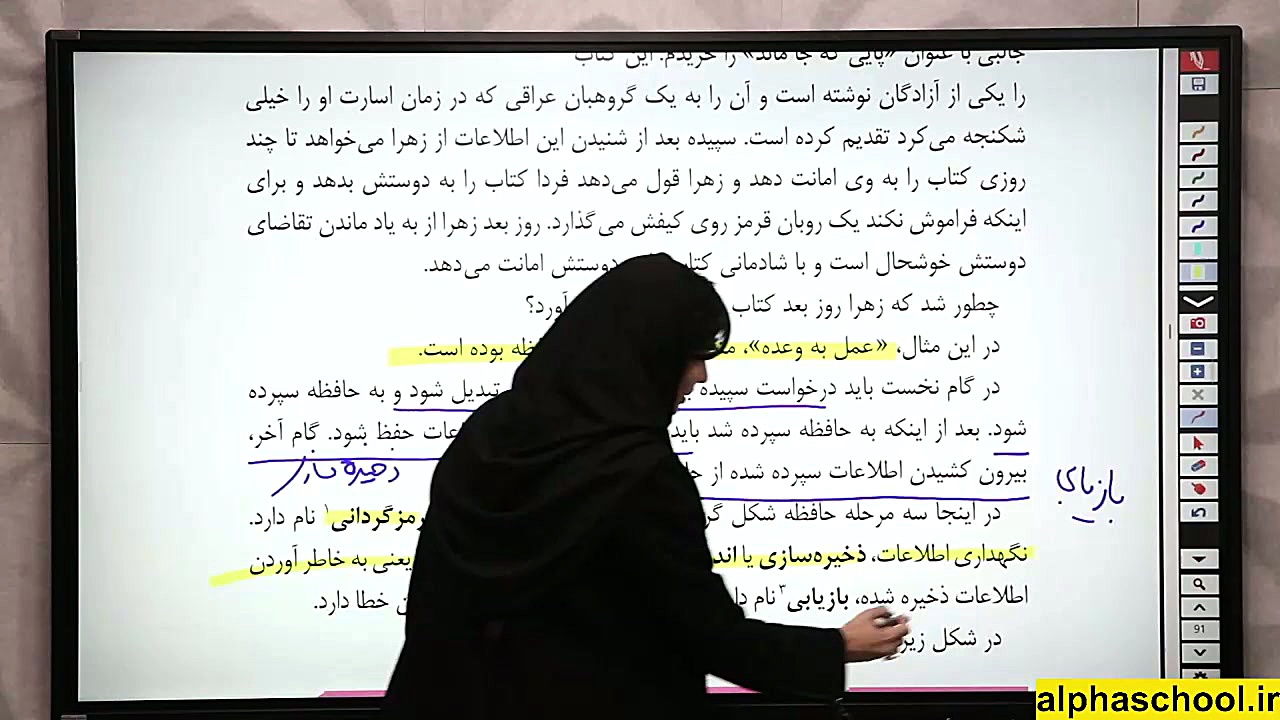 جالبی با عنوان «پایی که جا ماند» را خریدم. این کتاب
را یکی از آزادگان نوشته است و آن را به یک گروهبان عراقی که در زمان اسارت او را خیلی
شکنجه می‌کرد تقدیم کرده است. سپیده بعد از شنیدن این اطلاعات از زهرا می‌خواهد تا چند
روزی کتاب را به وی امانت دهد و زهرا قول می‌دهد فردا کتاب را به دوستش بدهد و برای
اینکه فراموش نکند یک روبان قرمز روی کیفش می‌گذارد. روز بعد زهرا از به یاد ماندن تقاضای
دوستش خوشحال است و با شادمانی دوستش امانت می‌دهد.
چطور شد که زهرا روز بعد کتاب
در این مثال، «عمل به وعده»، بوده است.
در گام نخست باید درخواست سپیده تبدیل شود و به حافظه سپرده
شود. بعد از اینکه به حافظه سپرده شد باید حفظ شود. گام آخر،
بیرون کشیدن اطلاعات سپرده شده از
ذخیره سازی
بازیابی
در اینجا سه مرحله حافظه شکل رمزگردانی۱ نام دارد.
نگهداری اطلاعات، ذخیره‌سازی یا یعنی به خاطر آوردن
اطلاعات ذخیره شده، بازیابی۳ نام خطا دارد.
در شکل زیر
91
alphaschool.ir